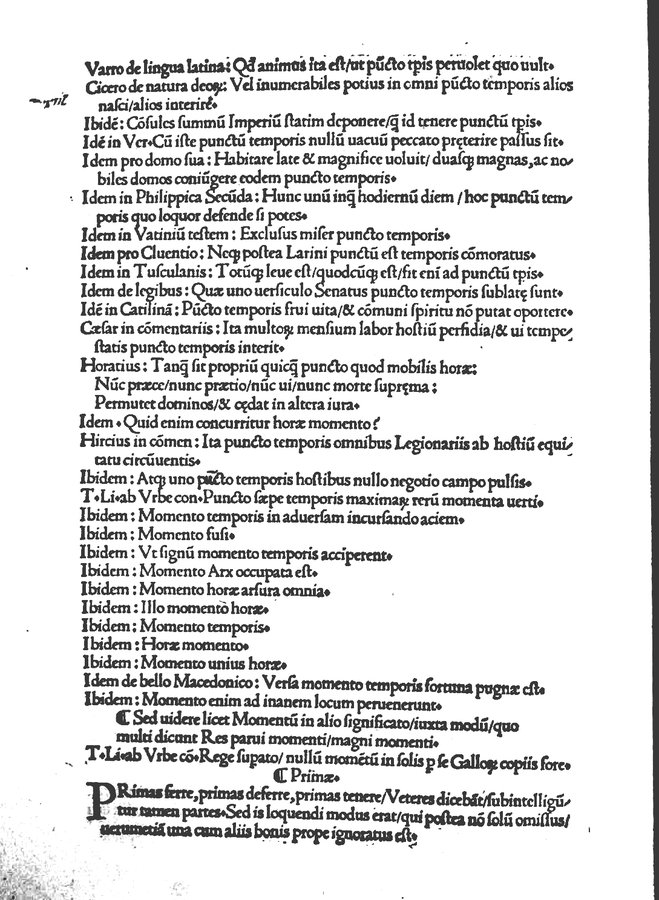 Varro de lingua latina: Qđ animus ita eſt/ut pūcto tp̄is peruolet quo uult.
Cicero de natura deoꝝ: Vel inumerabiles potius in omni pūcto temporis alios
naſci/alios interire.
Ibidē: Cōſules ſummū Imperiū ſtatim deponere/q̄ id tenere punctū tp̄is.
Idē in Ver. Cū iſte punctū temporis nullū uacuū peccato pręterire paſſus ſit.
Idem pro domo ſua: Habitare late & magnifice uoluit/ duaſqꝫ magnas, ac no/
biles domos coniūgere eodem puncto temporis.
Idem in Philippica Secūda: Hunc unū inq̄ hodiernū diem / hoc punctū tem/
poris quo loquor defende ſi potes.
Idem in Vatiniū teſtem: Excluſus miſer puncto temporis.
Idem pro Cluentio: Neqꝫ poſtea Larini punctū eſt temporis cōmoratus.
Idem in Tuſculanis: Totūqꝫ leue eſt/quodcūqꝫ eſt/fit enī ad punctū tp̄is.
Idem de legibus: Quæ uno uerſiculo Senatus puncto temporis ſublatę ſunt.
Idē in Catilinā: Pūcto temporis frui uita/& cōmuni ſpiritu nō putat oportere.
Cæſar in cōmentariis: Ita multoꝝ menſium labor hoſtiū perfidia/& ui tempe/
ſtatis puncto temporis interit.
Horatius: Tanq̄ ſit propriū quicq̄ puncto quod mobilis horæ:
Nūc præce/nunc prætio/nūc ui/nunc morte ſupręma:
Permutet dominos/& cędat in altera iura.
Idem. Quid enim concurritur horæ momento?
Hircius in cōmen: Ita puncto temporis omnibus Legionariis ab hoſtiū equi/
tatu circūuentis.
Ibidem: Atqꝫ uno pūcto temporis hoſtibus nullo negotio campo pulſis.
T. Li. ab Vrbe con. Puncto ſæpe temporis maximaꝝ rerū momenta uerti.
Ibidem: Momento temporis in aduerſam incurſando aciem.
Ibidem: Momento fuſi.
Ibidem: Vt ſignū momento temporis acciperent.
Ibidem: Momento Arx occupata eſt.
Ibidem: Momento horæ arſura omnia.
Ibidem: Illo momento horæ.
Ibidem: Momento temporis.
Ibidem: Horæ momento.
Ibidem: Momento unius horæ.
Idem de bello Macedonico: Verſa momento temporis fortuna pugnæ eſt.
Ibidem: Momento enim ad inanem locum peruenerunt.
¶ Sed uidere licet Momentū in alio ſignificato/iuxta modū/quo
multi dicunt Res parui momenti/magni momenti.
T. Li. ab Vrbe cō. Rege ſupato/ nullū momētū in ſolis p ſe Galloꝝ copiis fore.
¶ Primæ.
PRimas ferre, primas deferre, primas tenere/Veteres dicebāt/ſubintelligū/
tur tamen partes. Sed is loquendi modus erat/qui poſtea nō ſolū omiſſus/
uerumetiā una cum aliis bonis prope ignoratus eſt.